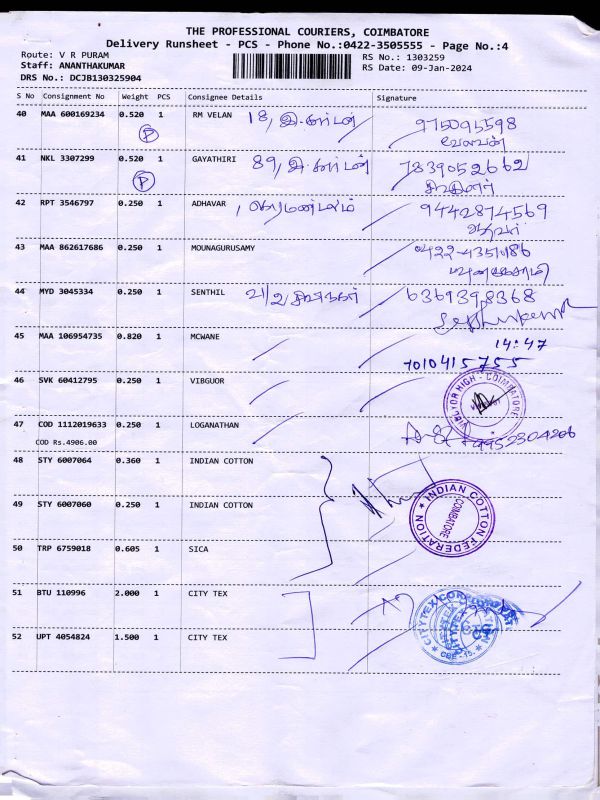 THE PROFESSIONAL COURIERS, COIMBATORE
Delivery Runsheet - PCS - Phone No.:0422-3505555 - Page No.:4
Route: V R PURAM
Staff: ANANTHAKUMAR
DRS No.: DCJB130325904
RS No.: 1303259
RS Date: 09-Jan-2024
S No Consignment No Weight PCS Consignee Details Signature
40 MAA 600169234 0.520 1 RM VELAN 18, இ.கார்டன் 9750915598
P வேலவன்
41 NKL 3307299 0.520 1 GAYATHIRI 89, இ.கார்டன் 7839052662
P
42 RPT 3546797 0.250 1 ADHAVAR 9442874569
ஆதவர்
43 MAA 862617686 0.250 1 MOUNAGURUSAMY 0422-4351186
44 MYD 3045334 0.250 1 SENTHIL 21/2 சிவாநகர் 6369398368
45 MAA 106954735 0.820 1 MCWANE 14:47
7010415755
46 SVK 60412795 0.250 1 VIBGUOR
VIBGYOR HIGH - COIMBATORE
47 COD 1112019633 0.250 1 LOGANATHAN 9952304206
COD Rs.4906.00
48 STY 6007064 0.360 1 INDIAN COTTON
49 STY 6007060 0.250 1 INDIAN COTTON
INDIAN COTTON FEDERATION
COIMBATORE
50 TRP 6759018 0.605 1 SICA
51 BTU 110996 2.000 1 CITY TEX
52 UPT 4054824 1.500 1 CITY TEX
CBE -15.